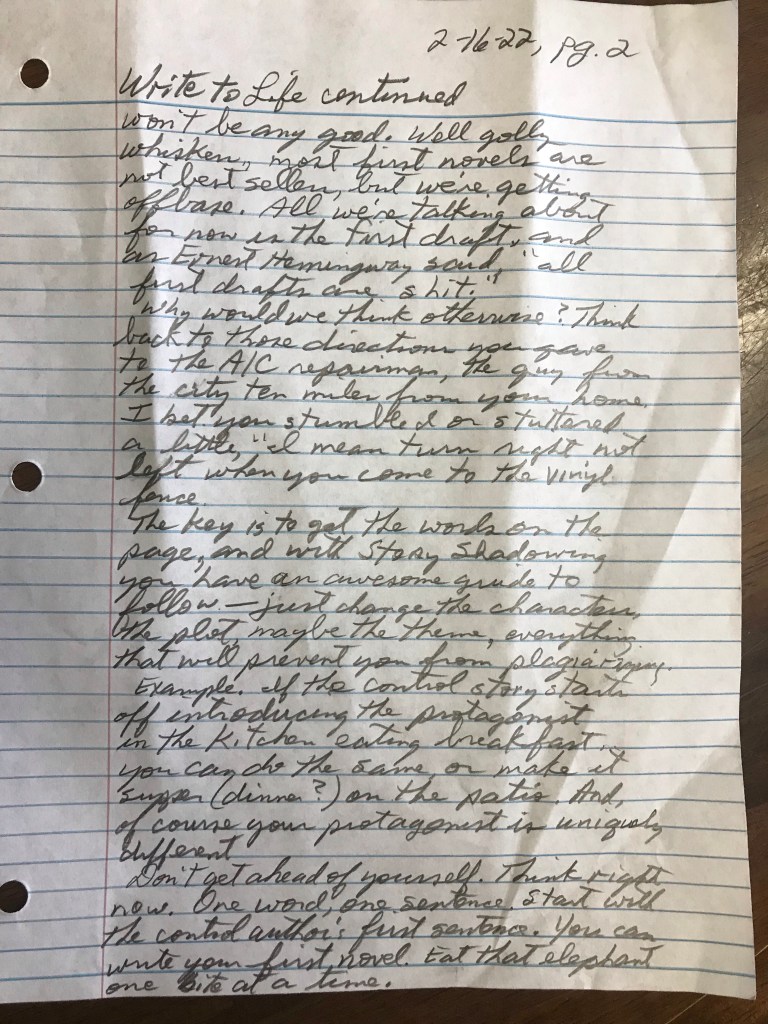 2-16-22, pg. 2
Write to Life continued
won't be any good. Well golly
whiskers, most first novels are
not best sellers, but we're getting
off base. All we're talking about
for now is the first draft, and
as Ernest Hemingway said, "all
first drafts are shit."
Why would we think otherwise? Think
back to those directions you gave
to the A/C repairman, the guy from
the city ten miles from your home.
I bet you stumbled or stuttered
a little, "I mean turn right not
left when you come to the vinyl
fence.
The key is to get the words on the
page, and with Story Shadowing
you have an awesome guide to
follow - just change the characters,
the plot, maybe the theme, everything
that will prevent you from plagiarizing.
Example. If the control story starts
off introducing the protagonist
in the kitchen eating breakfast,
you can do the same or make it
supper (dinner?) on the patio. And,
of course your protagonist is uniquely
different
Don't get ahead of yourself. Think right
now. One word, one sentence. Start with
the control author's first sentence. You can
write your first novel. Eat that elephant
one bite at a time.